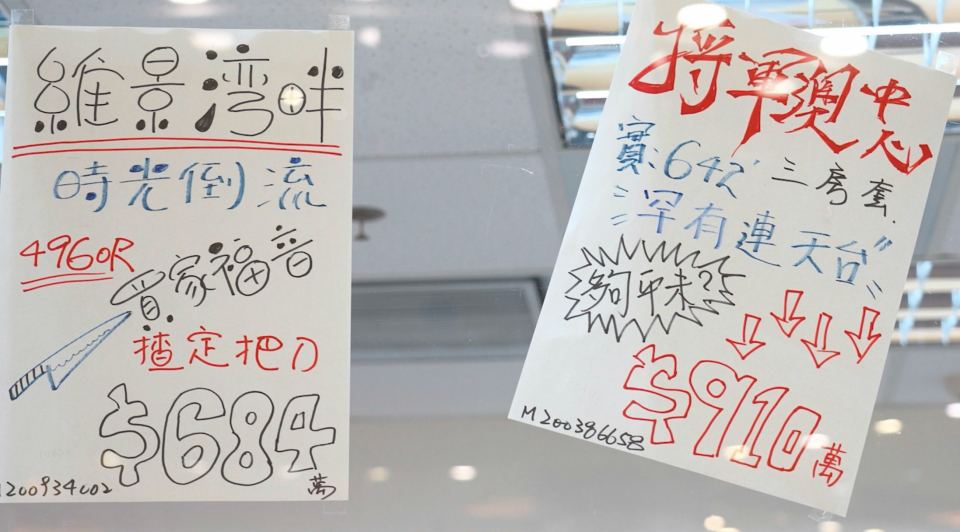 維景灣畔
時光倒流
496OR
買家福音
揸定把刀
$684
萬
M200934002
將軍澳中心
實:642' 三房套.
罕有連天台"
夠平未?
$910萬
M200386658